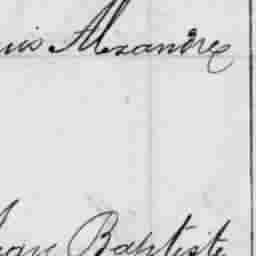 uis Alexandre
Jean Baptiste